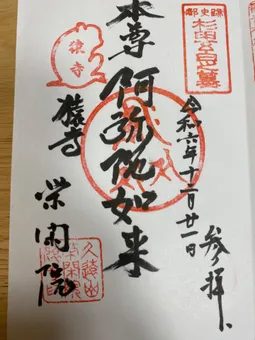 都史跡
杉田玄白之墓
令和六年十二月廿一日
参拝
本尊 阿弥陀如来
猿寺
猿寺 栄閑院
久遠山